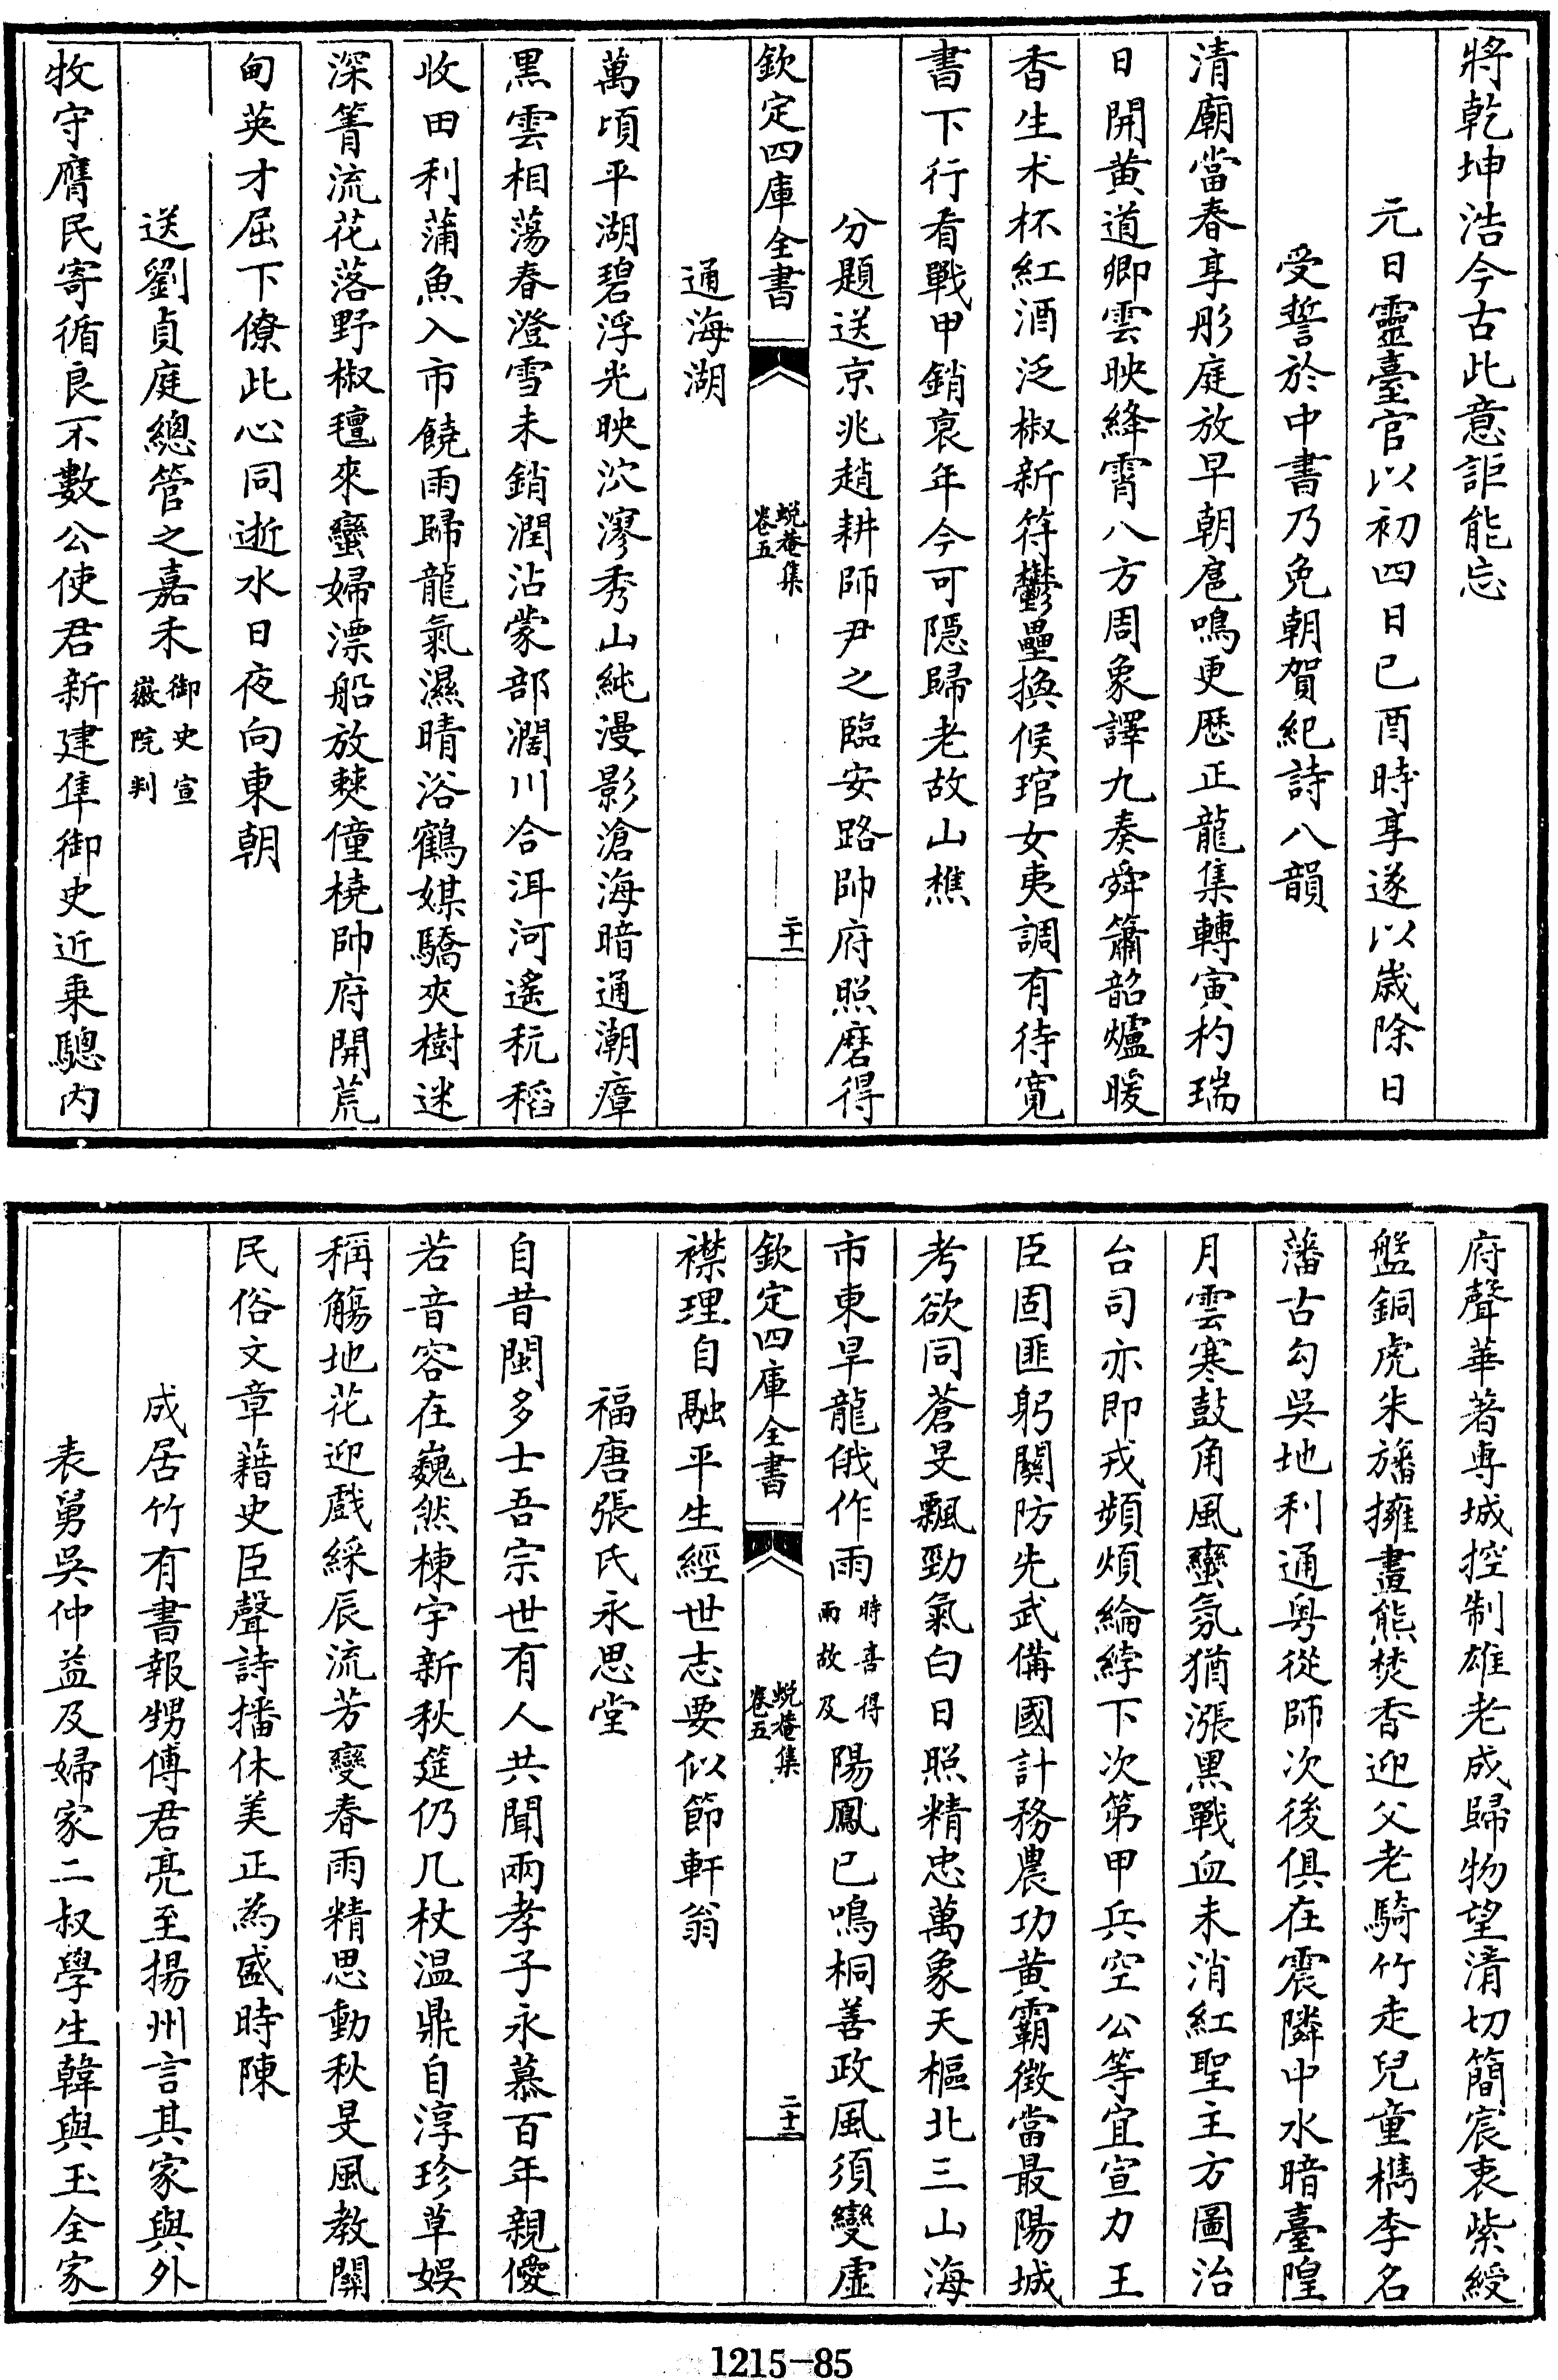 將乾坤浩今古此意詎能忘
元日靈臺官以初四日己酉時享遂以歲除日
受誓於中書乃免朝賀紀詩八韻
清廟當春享彤庭放早朝扈鳴更歴正龍集轉寅杓瑞
日開黄道卿雲映絳霄八方周象譯九奏舜簫韶爐暖
香生术杯紅酒泛椒新符鬱壘換候琯女夷調有待寛
書下行看戰甲銷衰年今可隠歸老故山樵
分題送京兆趙耕師尹之臨安路帥府照磨得
欽定四庫全書
蛻菴集
卷五
二十一
通海湖
萬頃平湖碧浮光映泬漻秀山純漫影滄海暗通潮瘴
黒雲相蕩春澄雪未銷潤沾蒙部濶川合洱河遙秔稻
收田利蒲魚入市饒雨歸龍氣濕晴浴鶴媒驕夾樹迷
深箐流花落野椒氊來蠻婦漂船放僰僮橈帥府開荒
甸英才屈下僚此心同逝水日夜向東朝
送劉貞庭總管之嘉禾御史宣
徽院判
牧守膺民寄循良不數公使君新建隼御史近乗驄内
府聲華著専城控制雄老成歸物望清切簡宸衷紫綬
盤銅虎朱旛擁畫熊焚香迎父老騎竹走兒童檇李名
藩古勾吳地利通粤從師次後俱在震隣中水暗臺隍
月雲寒鼓角風蠻氛猶漲黒戰血未消紅聖主方圖治
台司亦即戎頻煩綸綍下次第甲兵空公等宜宣力王
臣固匪躬關防先武備國計務農功黄霸徴當最陽城
考欲同蒼旻飄勁氣白日照精忠萬象天樞北三山海
市東旱龍俄作雨時喜得
雨故及陽鳳已鳴桐善政風須變虚
欽定四庫全書
蛻菴集
卷五
二十二
襟理自融平生經世志要似節軒翁
福唐張氏永思堂
自昔閩多士吾宗世有人共聞兩孝子永慕百年親僾
若音容在巍然棟宇新秋筵仍几杖温鼎自淳珍草娱
稱觴地花迎戲綵辰流芳變春雨精思動秋旻風教關
民俗文章藉史臣聲詩播休美正為盛時陳
成居竹有書報甥傅君亮至揚州言其家與外
表舅吳仲益及婦家二叔學生韓與玉全家
1215-85